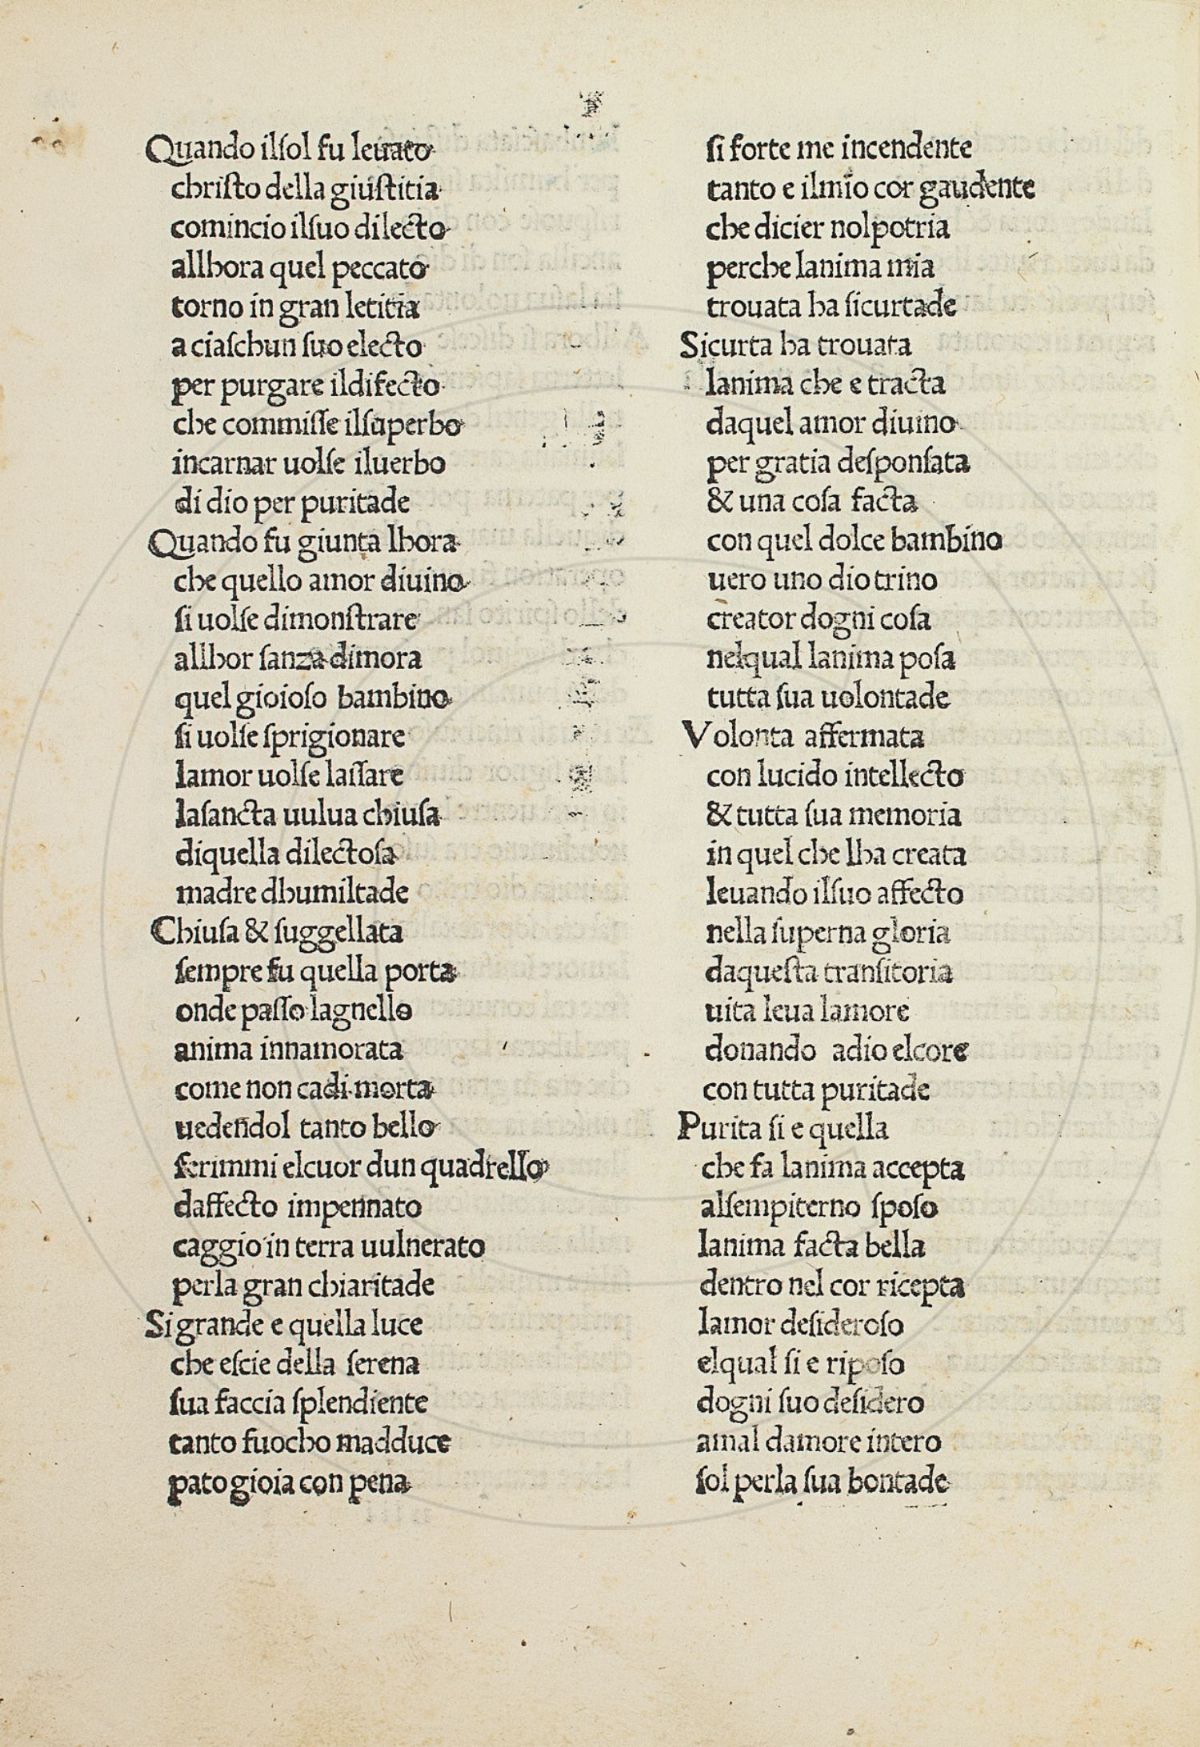 Quando ilſol fu leuato
chriſto della giuſtitia
comincio ilſuo dilecto
allhora quel peccato
torno in gran letitia
a ciaſchun ſuo electo
per purgare ildifecto
che commiſſe ilſuperbo
incarnar uolſe iluerbo
di dio per puritade
Quando fu giunta lhora
che quello amor diuino
ſi uolſe dimonſtrare
allhor ſanza dimora
quel gioioſo bambino
ſi uolſe ſprigionare
lamor uolſe laſſare
laſancta uulua chiuſa
diquella dilectoſa
madre dhumiltade
Chiuſa & ſuggellata
ſempre fu quella porta
onde paſſo lagnello
anima innamorata
come non cadi morta
uedendol tanto bello
ferimmi elcuor dun quadrello
daffecto impennato
caggio in terra uulnerato
perla gran chiaritade
Si grande e quella luce
che eſcie della ſerena
ſua faccia ſplendiente
tanto fuocho madduce
pato gioia con pena
ſi forte me incendente
tanto e ilmio cor gaudente
che dicier nolpotria
perche lanima mia
trouata ha ſicurtade
Sicurta ha trouata
lanima che e tracta
daquel amor diuino
per gratia deſponſata
& una coſa facta
con quel dolce bambino
uero uno dio trino
creator dogni coſa
nelqual lanima poſa
tutta ſua uolontade
Volonta affermata
con lucido intellecto
& tutta ſua memoria
in quel che lha creata
leuando ilſuo affecto
nella ſuperna gloria
daqueſta tranſitoria
uita leua lamore
donando adio elcore
con tutta puritade
Purita ſi e quella
che fa lanima accepta
alſempiterno ſpoſo
lanima facta bella
dentro nel cor ricepta
lamor deſideroſo
elqual ſi e ripoſo
dogni ſuo deſidero
amal damore intero
ſol perla ſua bontade